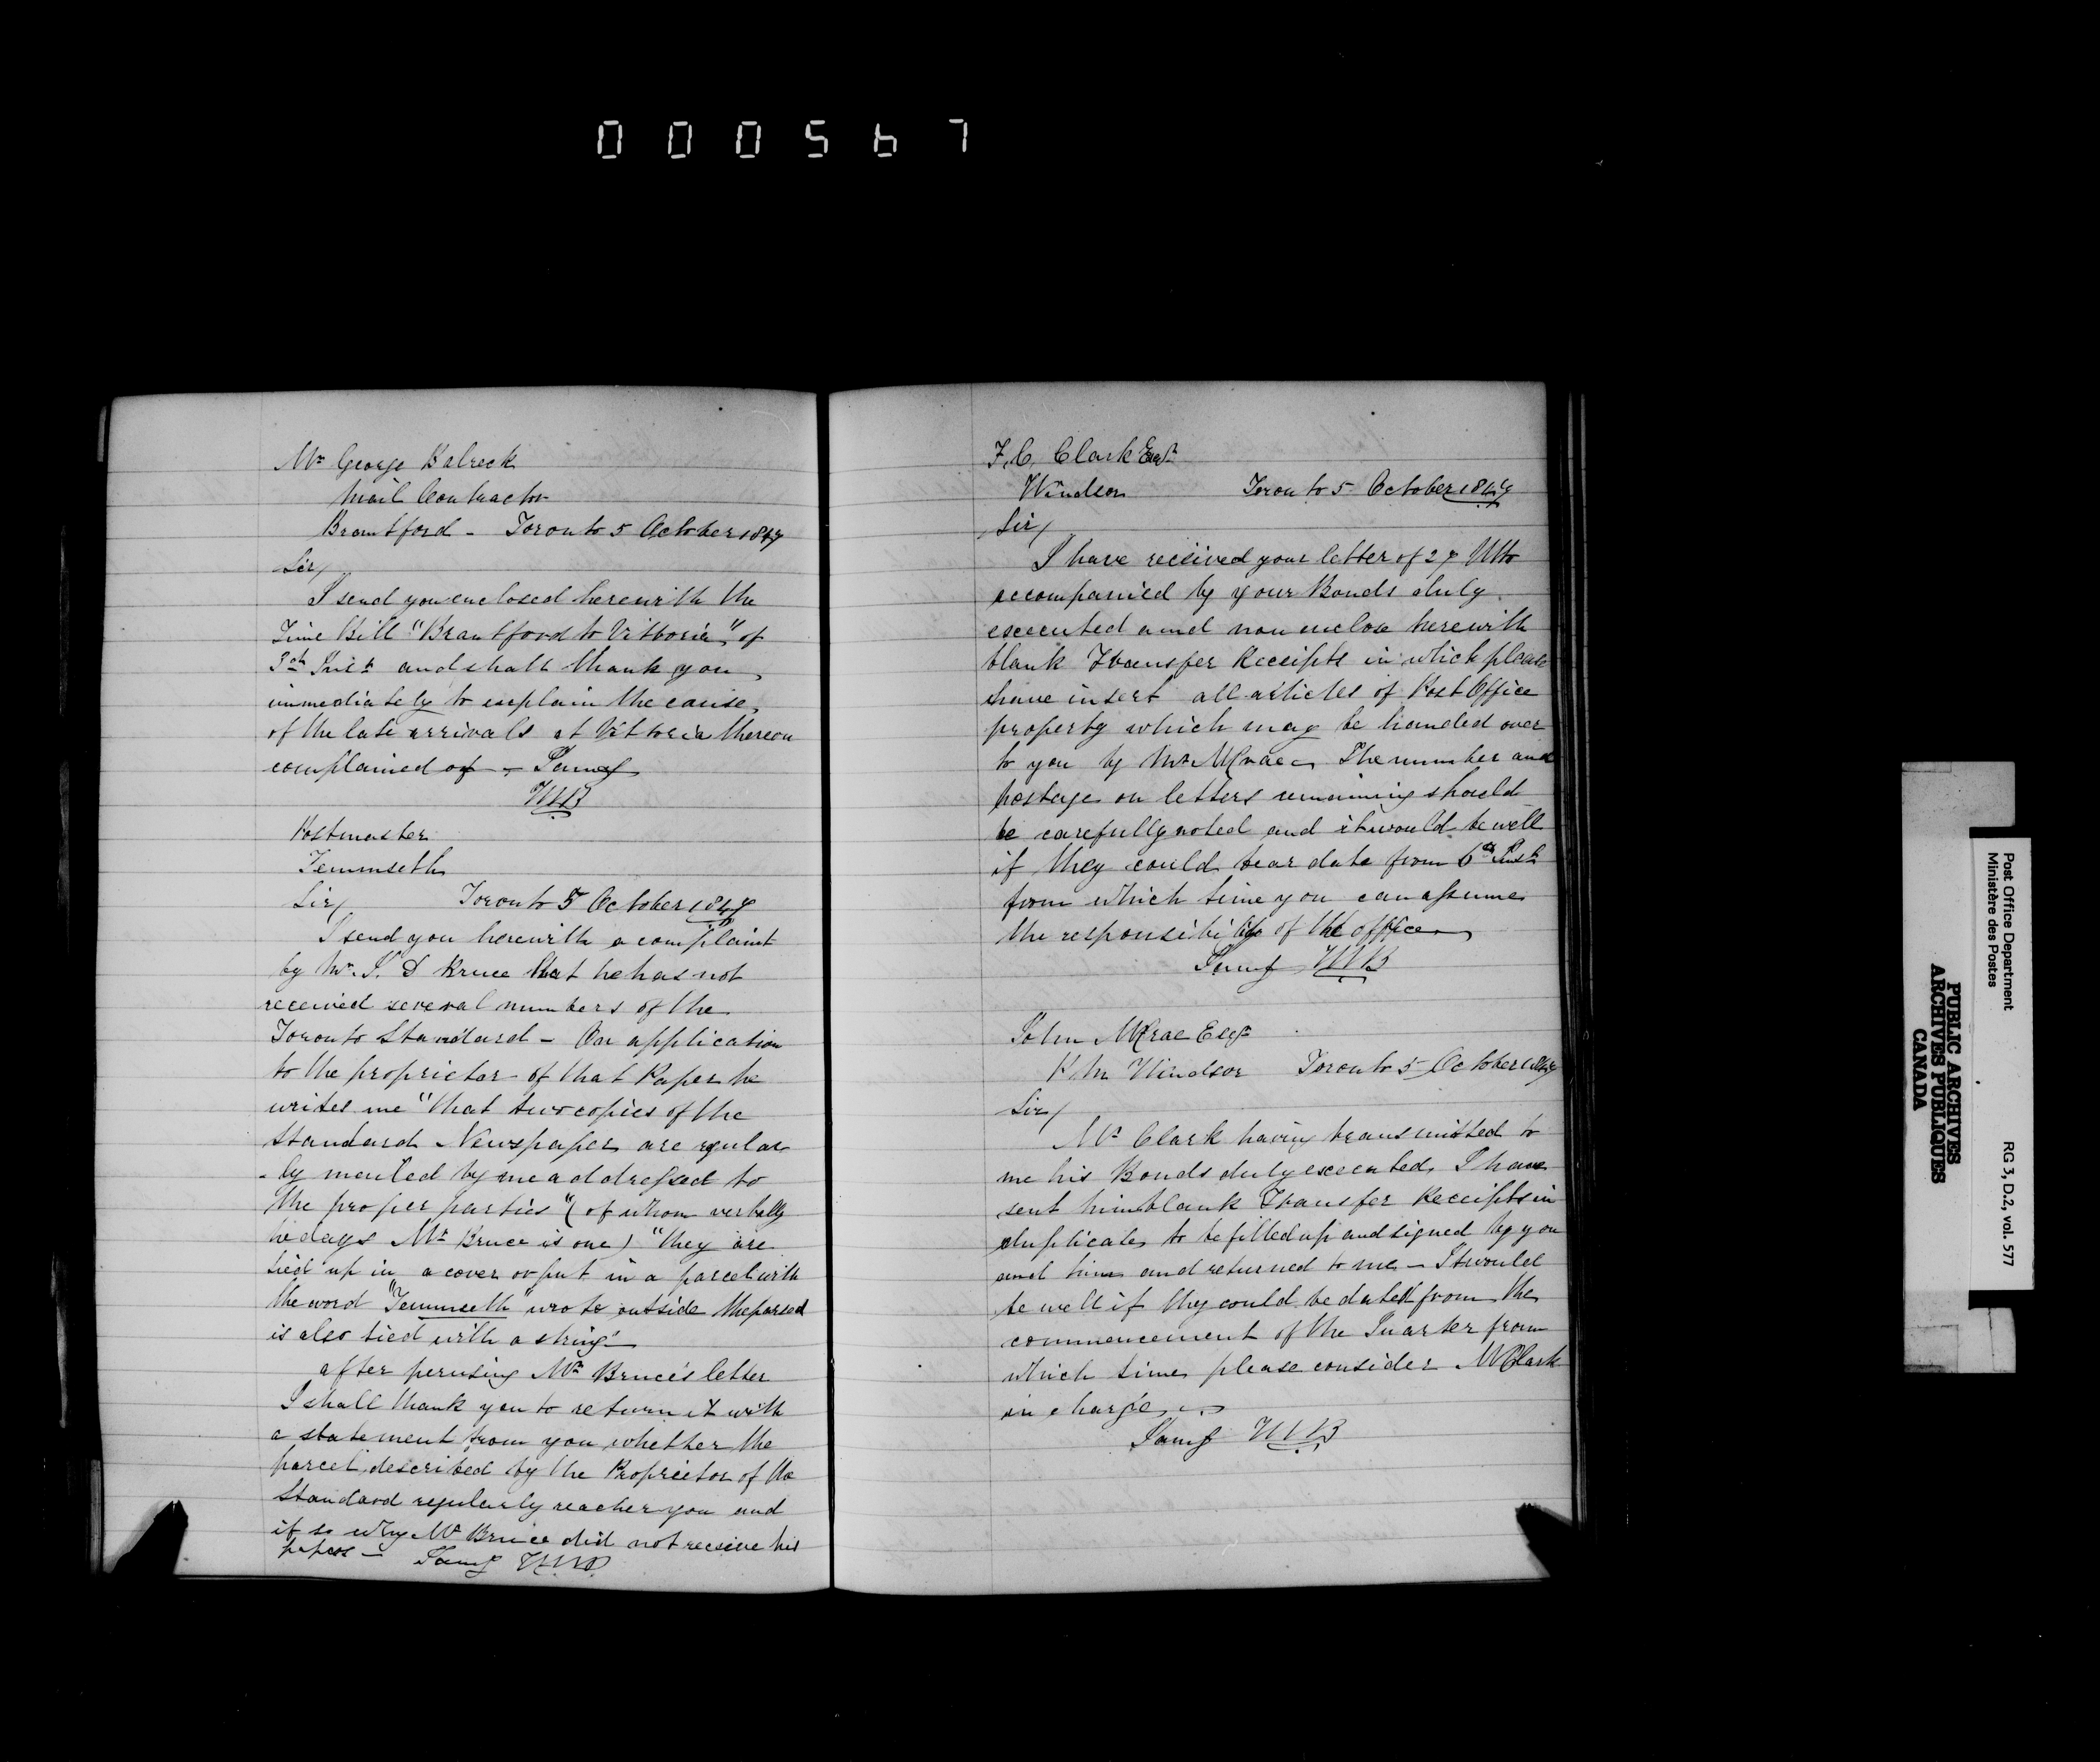 000567
Mr George Balreck
Mail Contractor
Brantford - Toronto 5 October 1847
Sir/
I send you enclosed herewith the
Time Bill "Brantford to Vittoria" of
3rd Inst and shall thank you
immediately to explain the cause
of the late arrivals at Vittoria thereon
complained of - I am &
WHB
Postmaster
Temmseth
Sir/ Toronto 5 October 1847
I send you herewith a complaint
by Mr. J. D Bruce that he has not
received several numbers of the
Toronto Standard - On application
to the proprietor of that Paper he
writes me "that two copies of the
Standard Newspaper are regular
-ly mented by me addressed to
the proper parties" (of whom verbally
he days Mr Bruce is one) "they are
tied up in a cover or put in a parcel with
the word "Temmseth" wrote outside the parsed
is also tied with a string"
after perusing Mr Bruce's letter
I shall thank you to return it with
a statement from you whether the
parcel described by the Proprietor of the
Standard regularly reaches you and
if so why Mr Bruce did not receive his
papers - I am &
F. C. Clark Esqr
Windsor Toronto 5 October 1847
Sir/
I have received your letter of 27 Ulto
accompanied by your Bonds duly
executed and now enclose herewith
blank Transfer Receipts in which please
have insert all articles of Post Office
property which may be handed over
to you by Mr. McCrae - The number and
postage on letters remaining should
be carefully noted and it would be well
if they could bear date from 6th Inst
from which time you can assume
the responsibility of the office
I am & WHB
John McCrae Esqr
P M Windsor Toronto 5 October 1847
Sir/
Mr Clark having transmitted to
me his Bonds duly executed, I have
sent him blank Transfer Receipts in
duplicate, to be filled up and signed by you
and him and returned to me - It would
be well if they could be dated from the
commencement of the Quarter from
which time please consider Mr Clark
in charge
I am & WHB
Post Office Department
Ministère des Postes
RG 3, D.2, vol. 577
PUBLIC ARCHIVES
ARCHIVES PUBLIQUES
CANADA